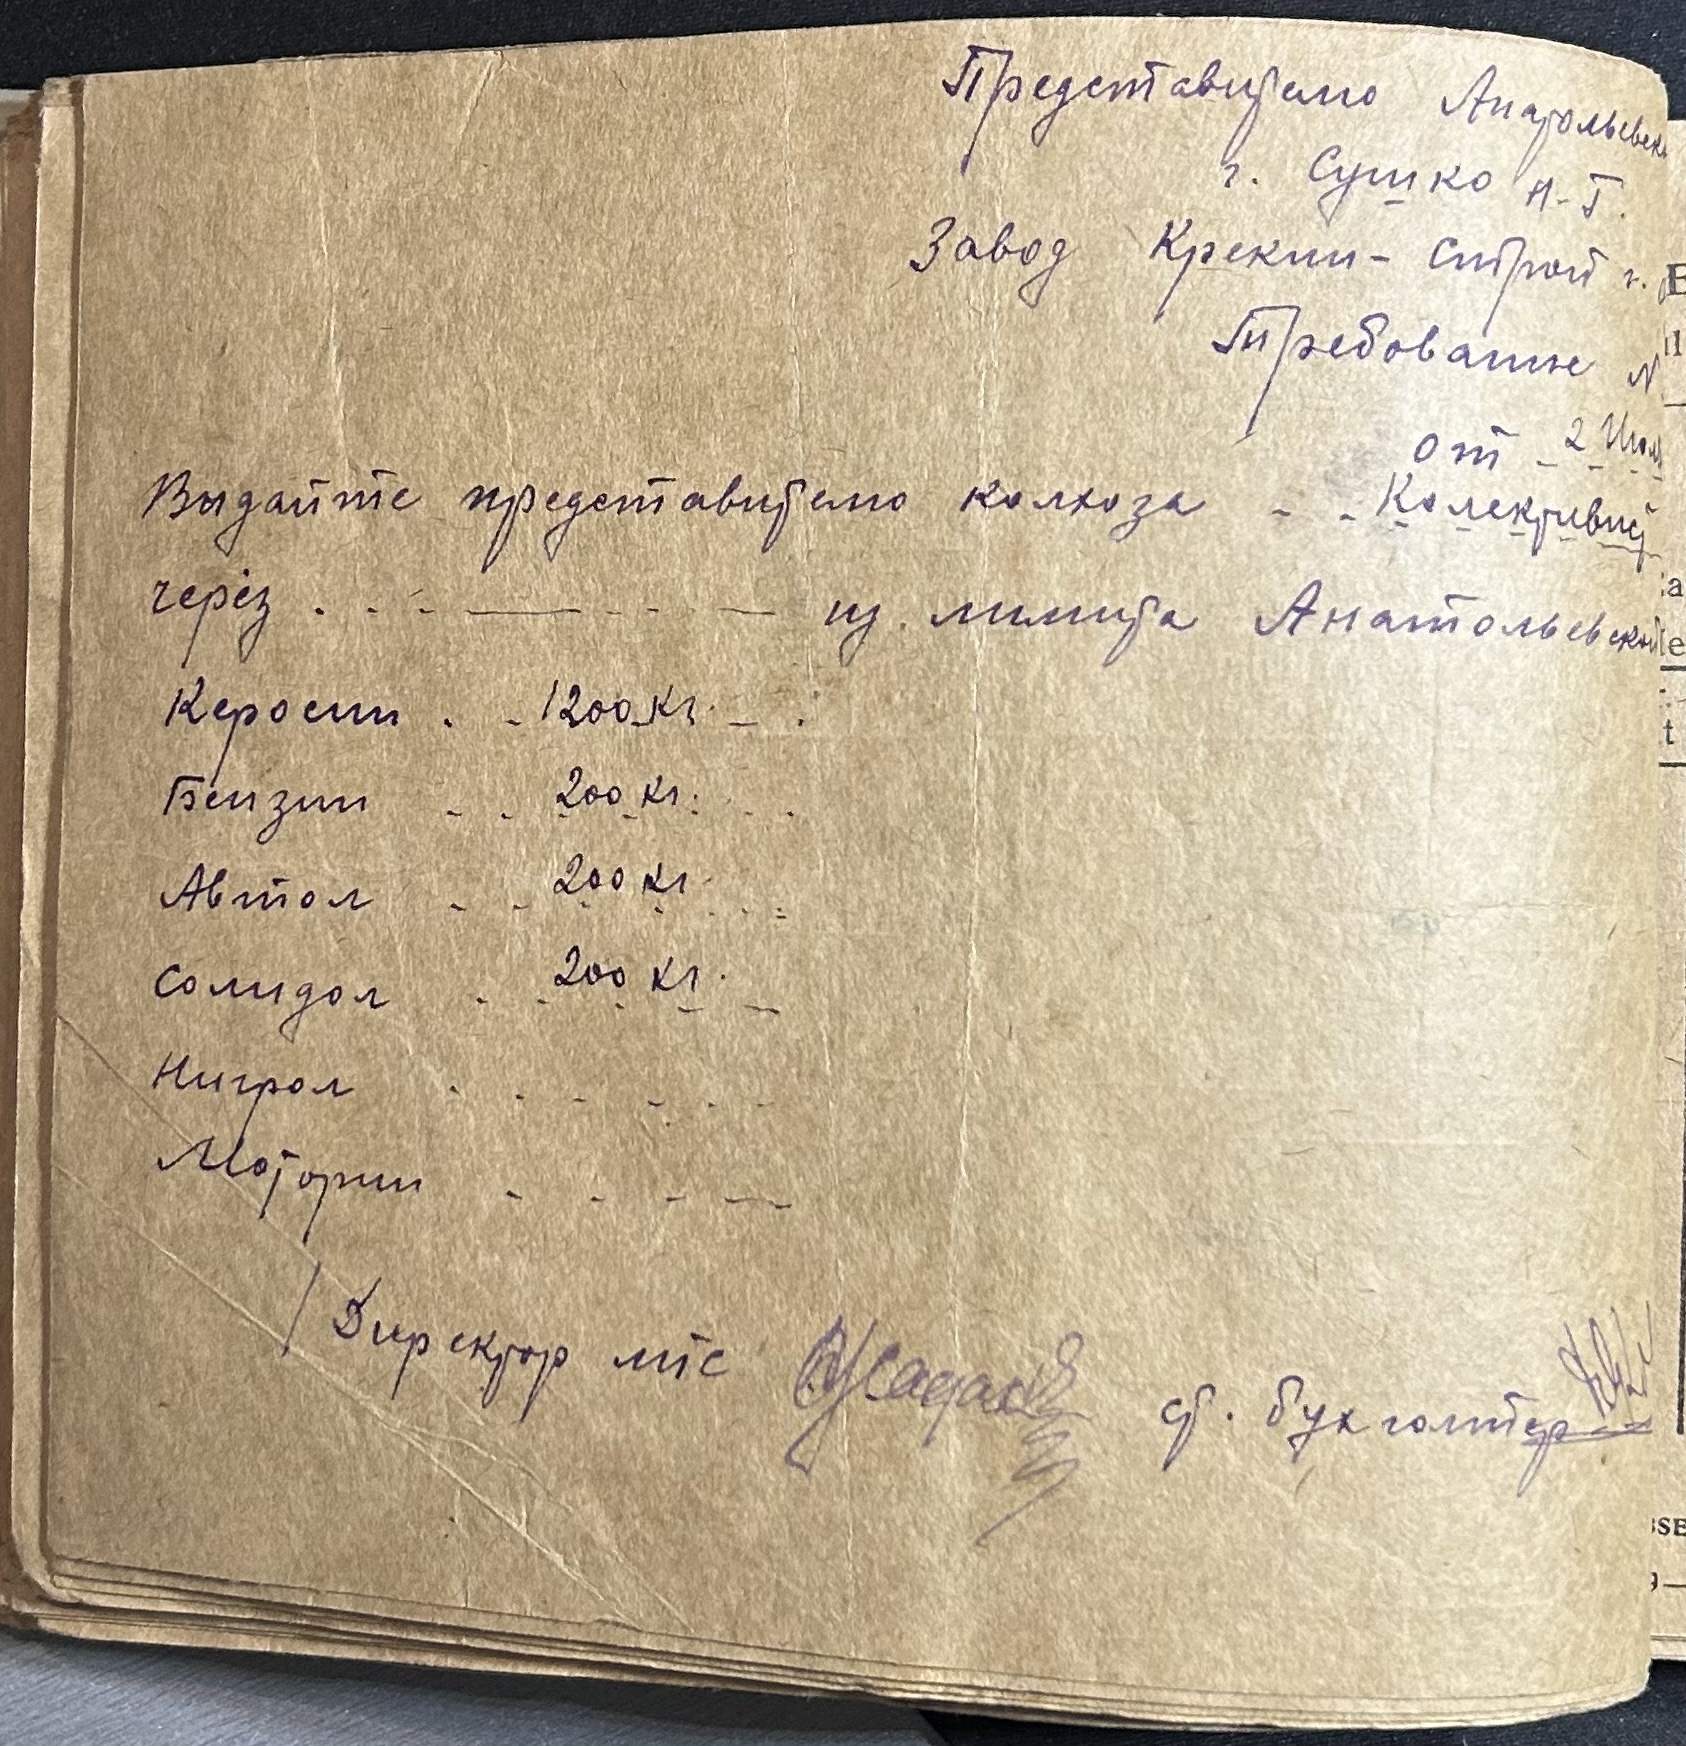 Представителю Анатольевск
г. Сушко Н-Г.
Завод Крекин-Строй г.
Требование N
от 2 Июл
Выдайте представителю колхоза Колективіст
через из лимита Анатольевской
Керосин 1200 кг.
Бензин 200 кг.
Автол 200 кг.
Солидол 200 кг.
Нигрол
Моторин
Директор мтс ст. бухгалтер